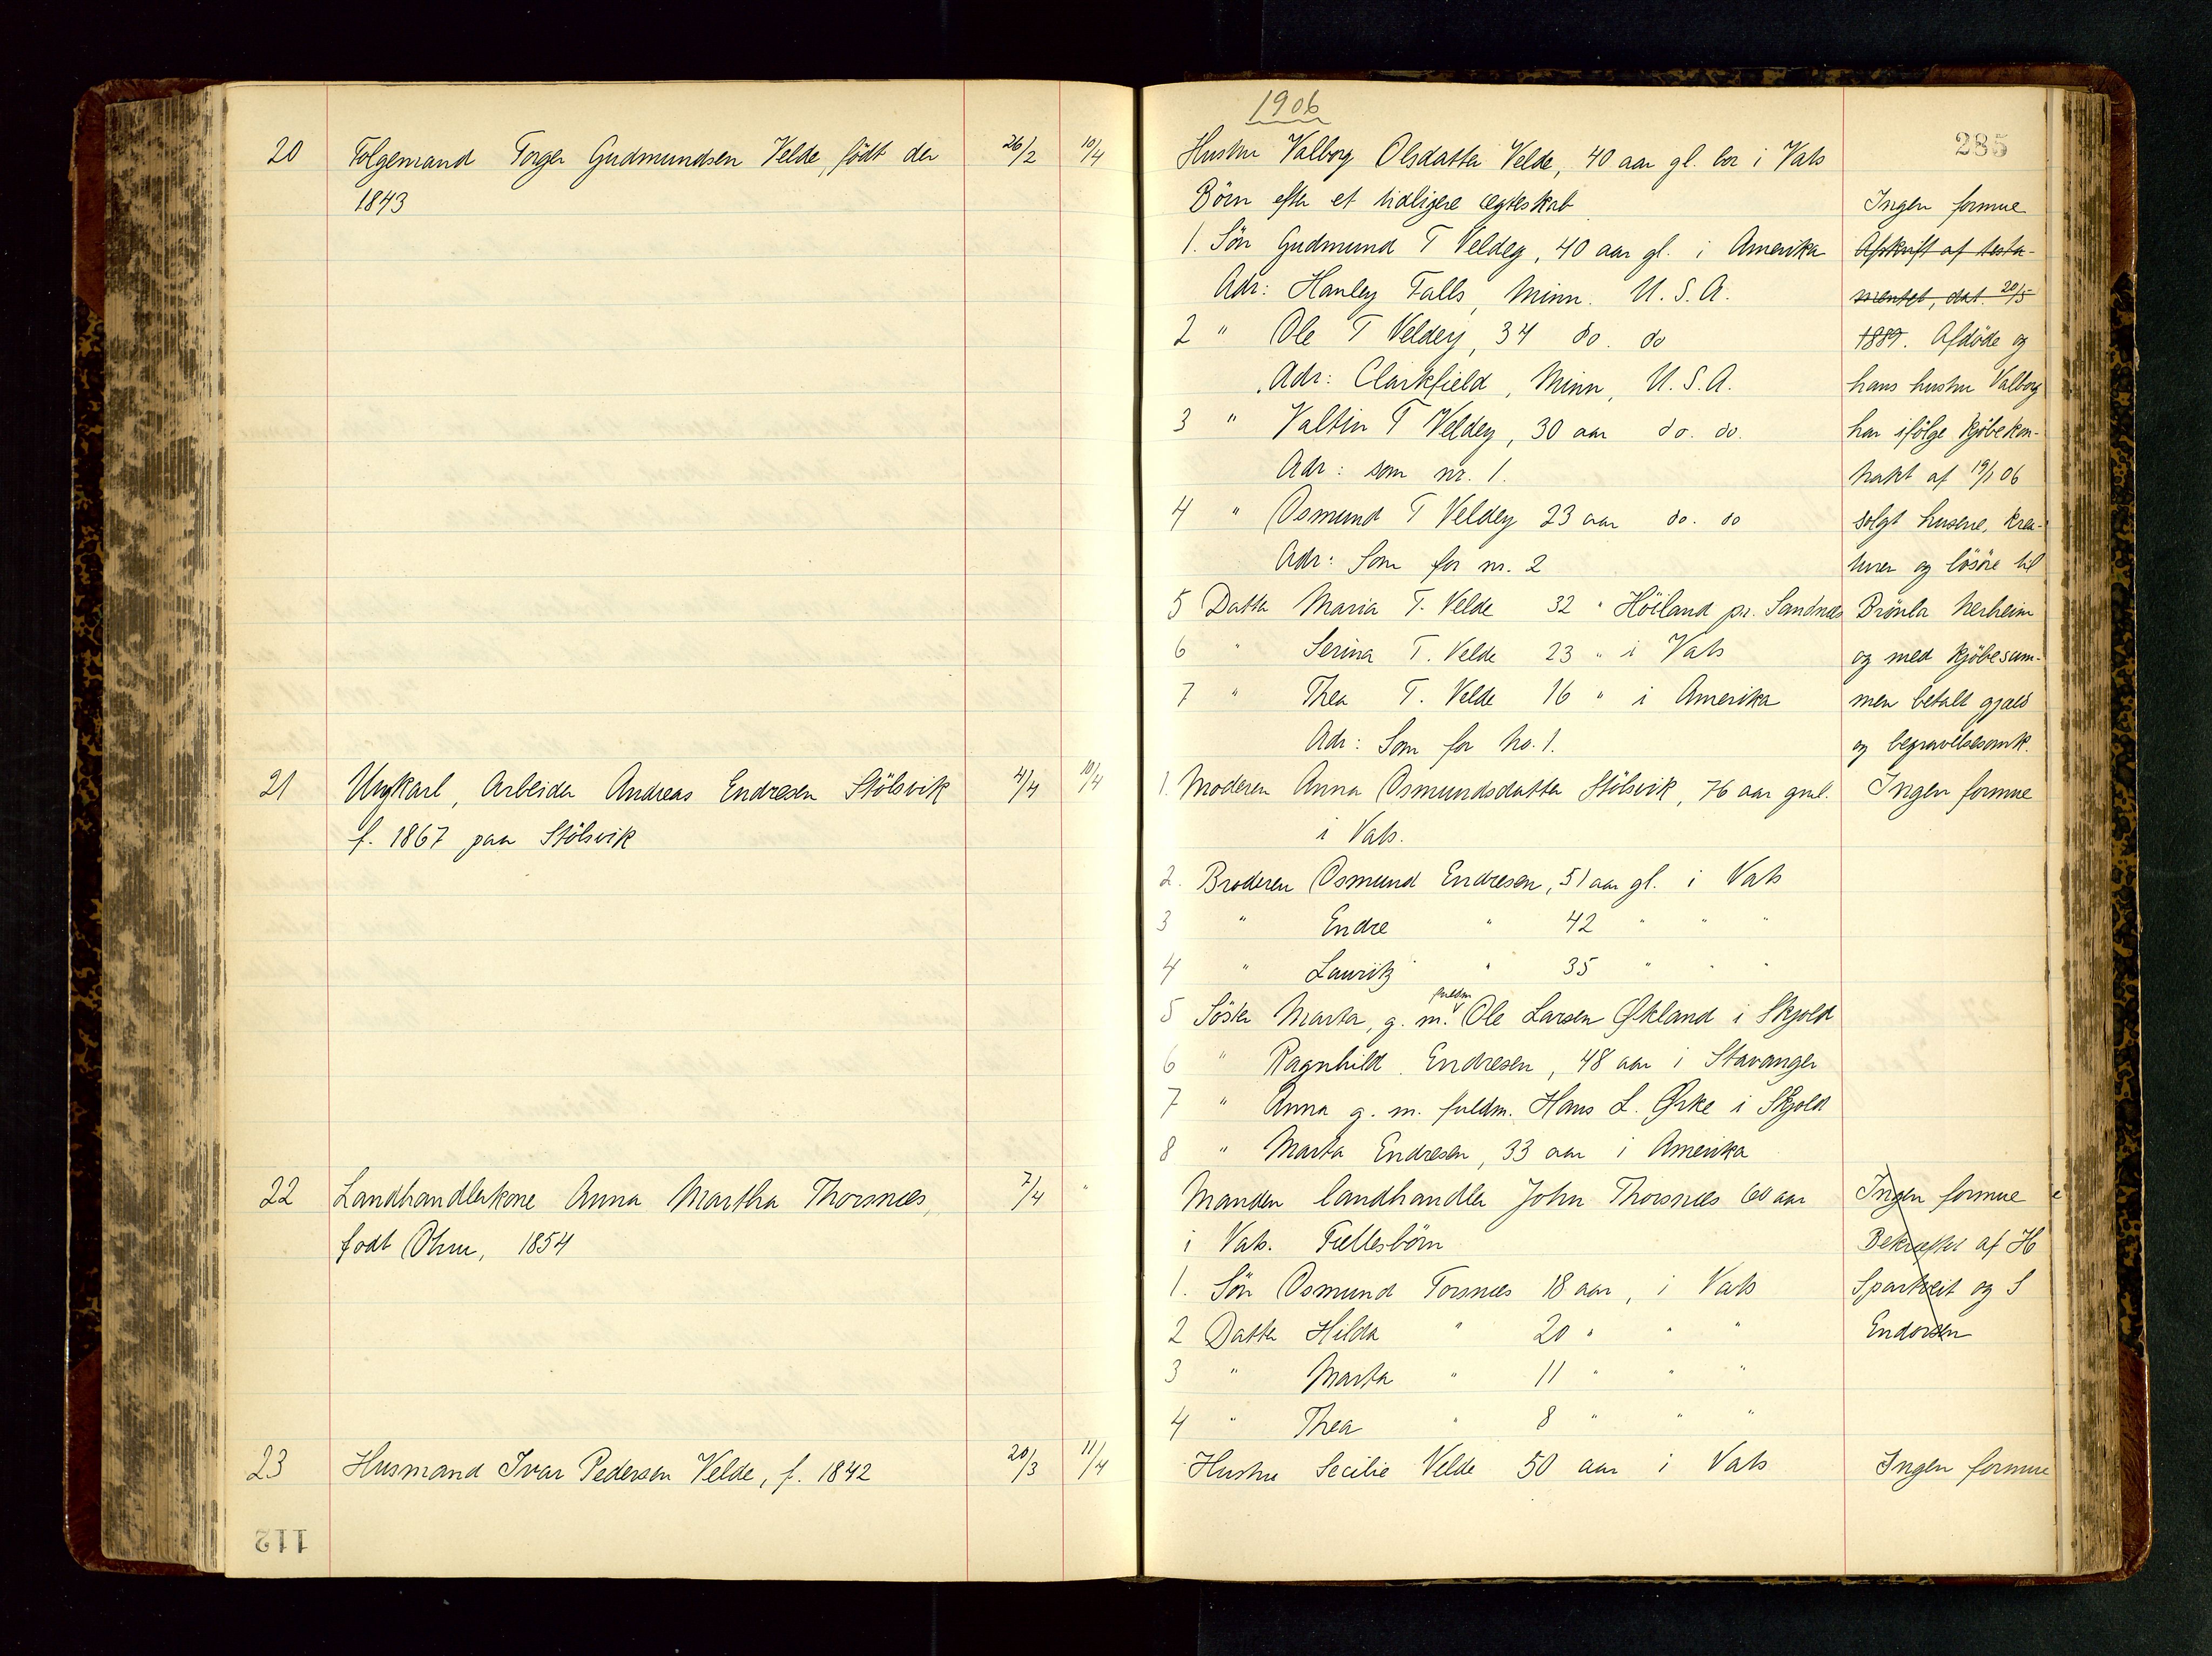 1906
285
20 Folgemand Torger Gudmundsen Velde, födt der 26/2 10/4
1843
Hustru Valborg Olsdatter Velde, 40 aar gl. bor i Vats
Börn efter et tidligere ægteskab
1. Sön Gudmund T Veldey, 40 aar gl. i Amerika
Adr: Hanley Falls, Minn. U.S.A.
2 " Ole T Veldey, 34 do. do
Adr: Clarkfield, Minn, U.S.A.
3 " Valtin T Veldey, 30 aar do. do.
Adr: som nr. 1.
4 " Osmund T Veldey 23 aar do. do
Adr: Som for nr. 2
5 Datter Maria T. Velde 32 " Höiland pr. Sandnæs
6 " Serina T. Velde 23 " i Vats
7 " Thea T. Velde 16 " i Amerika
Adr: Som for No. 1.
Ingen formue
Afskrift af testa-
mentet, dat. 20/5
1889. Afdöde og
hans hustru Valborg
har ifölge kjöbekon-
trakt af 19/1 06
solgt husene, krea-
turer og lösöre til
Brönla Nerheim
og med kjöbesum-
men betalt gjæld
og begravelsesomk.
21 Ungkarl, Arbeider Andreas Endresen Stölsvik 4/4 10/4
f. 1867 paa Stölsvik
1. Moderen Anna Osmundsdatter Stölsvik, 76 aar gml.
i Vats.
2. Broderen Osmund Endresen, 51 aar gl. i Vats
3 " Endre " 42 " " "
4 " Lauritz " 35 " " "
5 Söster Marta, g. m. fuldm Ole Larsen Økland i Skjold
6 " Ragnhild Endresen, 48 aar i Stavanger
7 " Anna g. m. fuldm. Hans L. Ørke i Skjold
8 " Marta Endresen, 33 aar i Amerika
Ingen formue
22 Landhandlerkone Anna Martha Thorsnæs, 7/4 "
födt Ohm, 1854
Manden landhandler John Thorsnæs 60 aar
i Vats. Fællesbörn
1. Sön Osmund Torsnæs 18 aar, i Vats
2 Datter Hilda " 20 " " "
3 " Marta " 11 " " "
4 " Thea " 8 " " "
Ingen formue
Bekræftet af H
Spartveit og S
Endorsen
23 Husmand Ivar Pedersen Velde, f. 1842 20/3 11/4
Hustru Secilie Velde 50 aar i Vats
Ingen formue
112